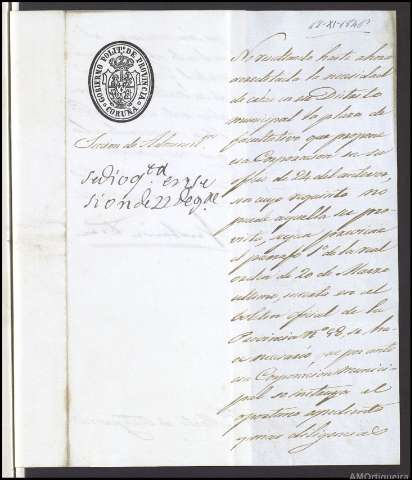 12-XI-1848
GOBIERNO POLIT.º DE PROVINCIA
CORUÑA
No resultando hasta ahora
acreditada la necesidad
de crear en ese Distrito
municipal la plaza de
facultativo que propone
esa Corporacion en su
oficio de 24 del antero,
sin cuyo requisito no
puede aquella ser pro
vista, segun previene
el parrafo 1.º de la real
orden de 20 de Marzo
ultimo, inserto en el
boletin oficial de la
Provincia nº 38, se hace
necesario, que ante
esa Corporacion munici
pal se instruya el
oportuno espediente
y mas diligencias
Seccion de Admon
se dio q.ta en se
sion de 22 de
AMOrtigueira